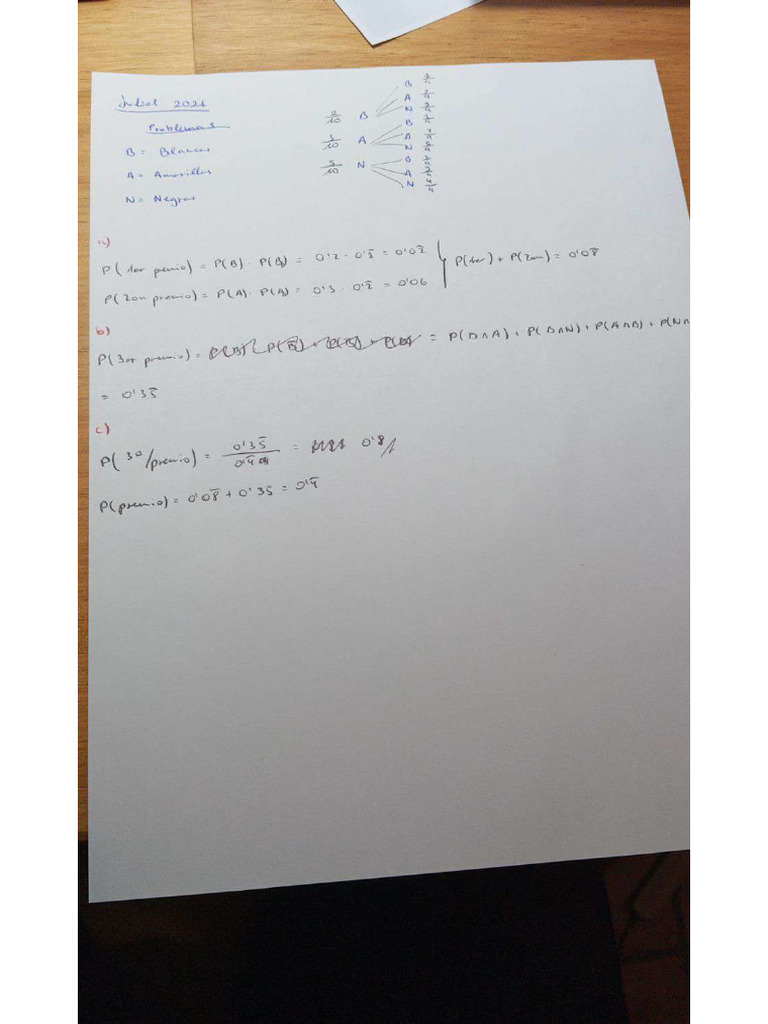 Juliol 2021
Problema 5
B = Blancas
A = Amarillas
N = Negras
2/10 B
3/10 A
5/10 N
B
A
N
B
A
N
B
A
N
a)
P(1er premio) = P(B) · P(B) = 0'2 · 0'1̅ = 0'02̅
P(2on premio) = P(A) · P(A) = 0'3 · 0'2̅ = 0'06
P(1er) + P(2on) = 0'08̅
b)
P(3er premio) = = P(B∩A) + P(B∩N) + P(A∩B) + P(N∩
= 0'35̅
c)
P(3o/premio) = 0'35̅ / 0'4̅ = 0'8
P(premio) = 0'08̅ + 0'35̅ = 0'4̅